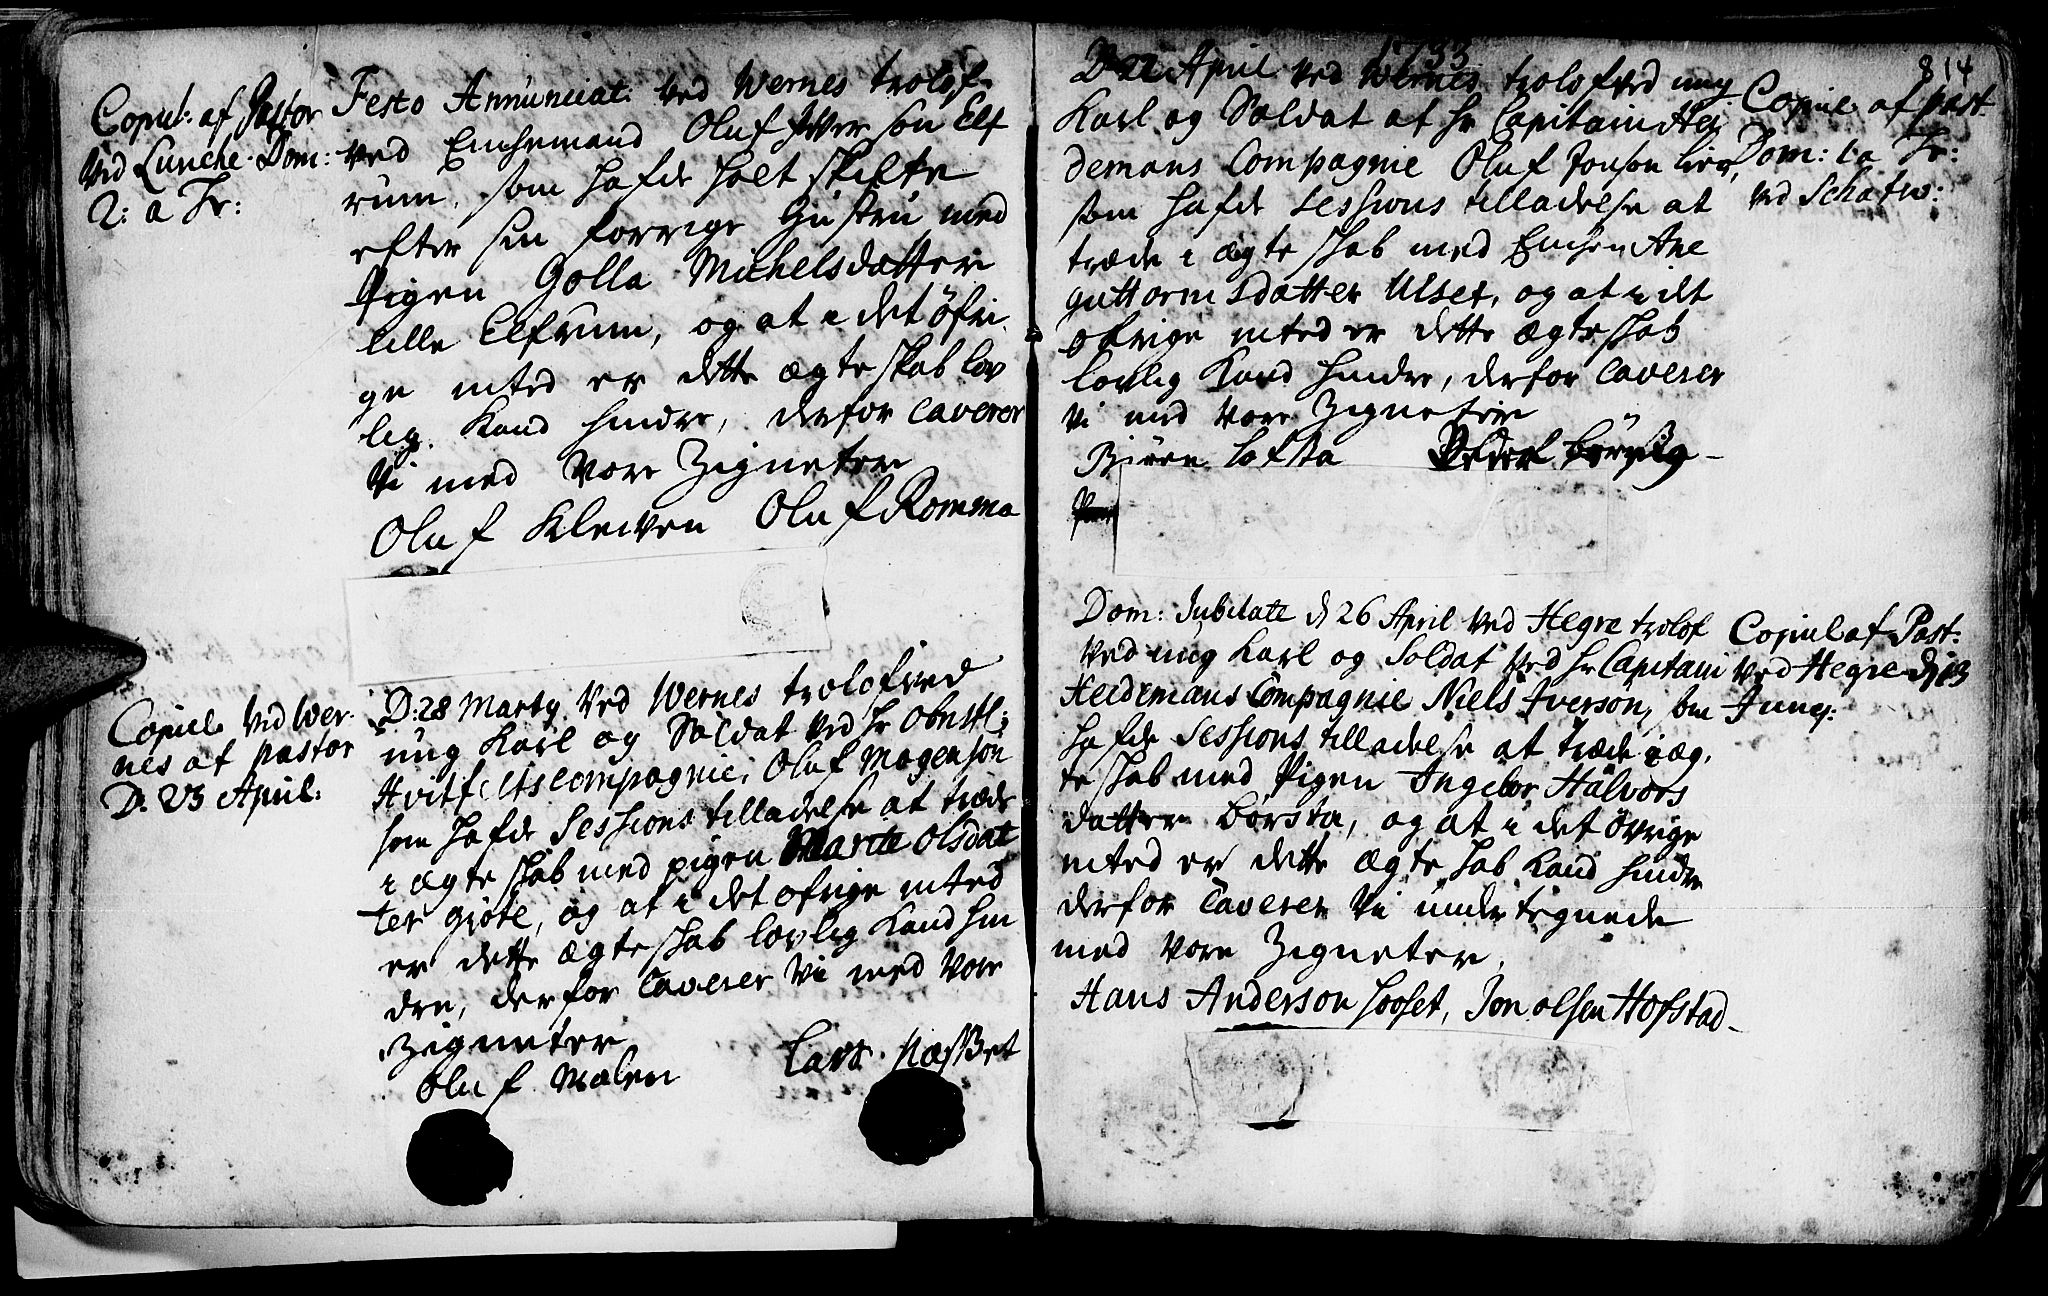 Copul: af Pastor
Ved Lunche. Dom:
2: a Tr:
Festo Annunciat: ved Wernes trolof-
ved Enchemand Oluf Iverson Elf
rum, som hafde holt skifte
efter sin forrige Hustru med
Pigen Golla Michelsdatter
lille Elfrum, og at i det öfri
ge inted er dette ægteskab lov
lig Kand hindre, derfor Caverer
Vi med Vore Zigneter
Oluf Kleiven Oluf Romma
Copul. Ved Wer-
nes af pastor
D. 23 April:
D: 28 Marty Ved Wernes trolofved
ung Karl og Soldat Ved hr Obristl:
Hvitfelts Compagnie: Oluf Mogenson
som hafde Sessions tilladelse at træde
i ægteskab med pigen Marite Olsdat
ter Gjöte, og at i det ofrige inted
er dette ægteskab lovlig Kand hin
dre, derfor Caverer Vi med Vore
Zigneter
Oluf Molen Lars
1733
814
D 22 April Ved Wernes trolofved ung
Karl og Soldat af hr Capitain Hei
demans Compagnie Oluf Jonson lier,
som hafde Sessions tilladelse at
træde i ægteskab med Enchen Ane
Guttormsdatter Ulset, og at i det
ofrige inted er dette ægteskab
lovlig Kand hindre, derfor Caverer
Vi med Vore Zigneter
Biören
Copul. af Past.
Dom: 1. a Tr:
ved Schatw:
Dom: Jubilate d 26 April Ved Hegre trolof
Ved ung Karl og Soldat Ved hr Capitain
Heidemans Compagnie Niels Iverson, som
hafde Sessions tilladelse at træde i æg,
teskab med Pigen Ingebor Halvors
datter Börsta, og at i det övrige
inted er dette ægteskab Kand hindre
derfor Caverer Vi undertegnede
med Vore Zigneter,
Hans Anderson Jon Olsen Hofstad
Copul af Past:
Ved Hegre d 13
Juny: